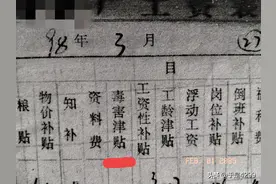 年 3 月
目
粮贴
物价补贴
知补
资料费
毒害津贴
工资性补贴
工龄津贴
浮动工资
岗位补贴
倒班补贴